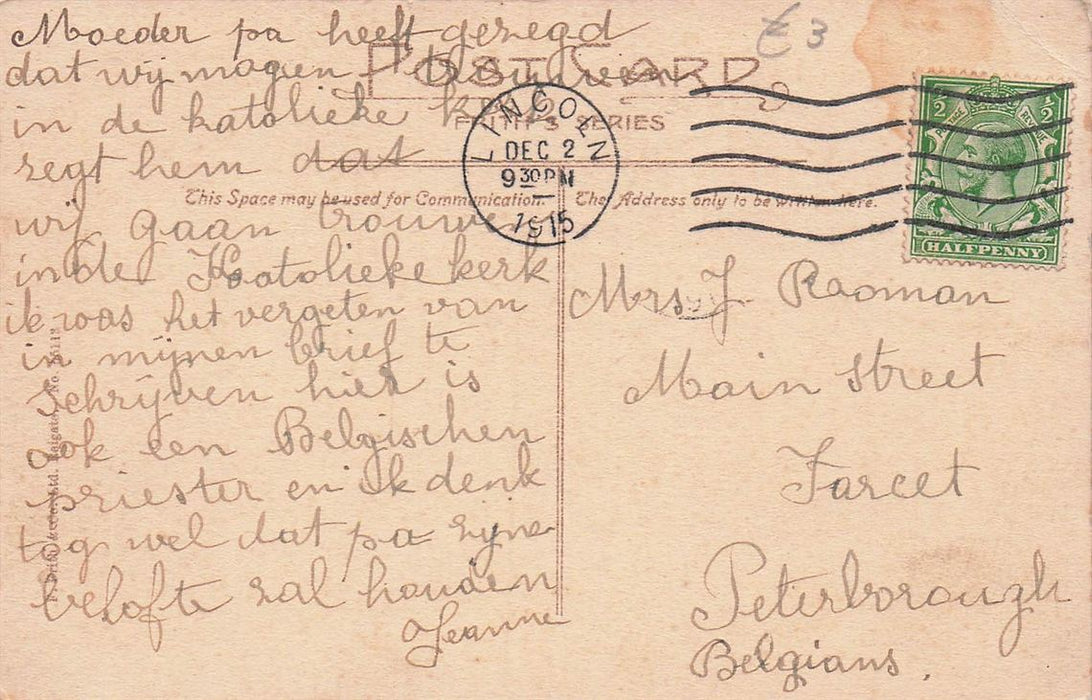 Moeder pa heeft gezegd
dat wij mogen trouwen
in de katolieke kerk
zegt hem dat
wij gaan trouwen
in de Katolieke kerk
ik was het vergeten van
in mijnen brief te
schrijven hier is
ook een Belgischen
priester en ik denk
tog wel dat pa zijne
belofte zal houden
Jeanne
£3
POST CARD
FRITH'S SERIES
This Space may be used for Communication.
The Address only to be written here.
LINCOLN
DEC 2
9 30 PM
1915
1/2 1/2
POSTAGE REVENUE
HALFPENNY
Mrs J. Raoman
Main Street
Farcet
Peterborough
Belgians.
Ltd. Reigate No.